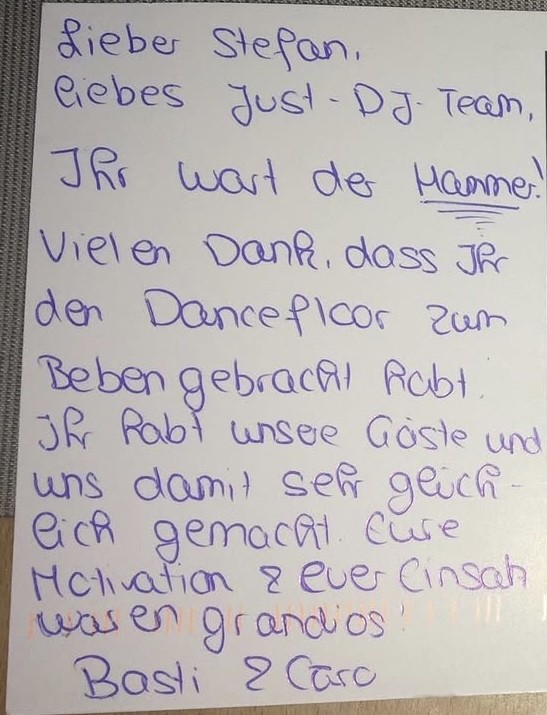 Lieber Stefan,
liebes Just-DJ-Team,
Ihr wart der Hammer!
Vielen Dank, dass Ihr
den Dancefloor zum
Beben gebracht habt.
Ihr habt unsere Gäste und
uns damit sehr glück-
lich gemacht. Eure
Motivation & euer Einsatz
waren grandios!
Basti & Caro